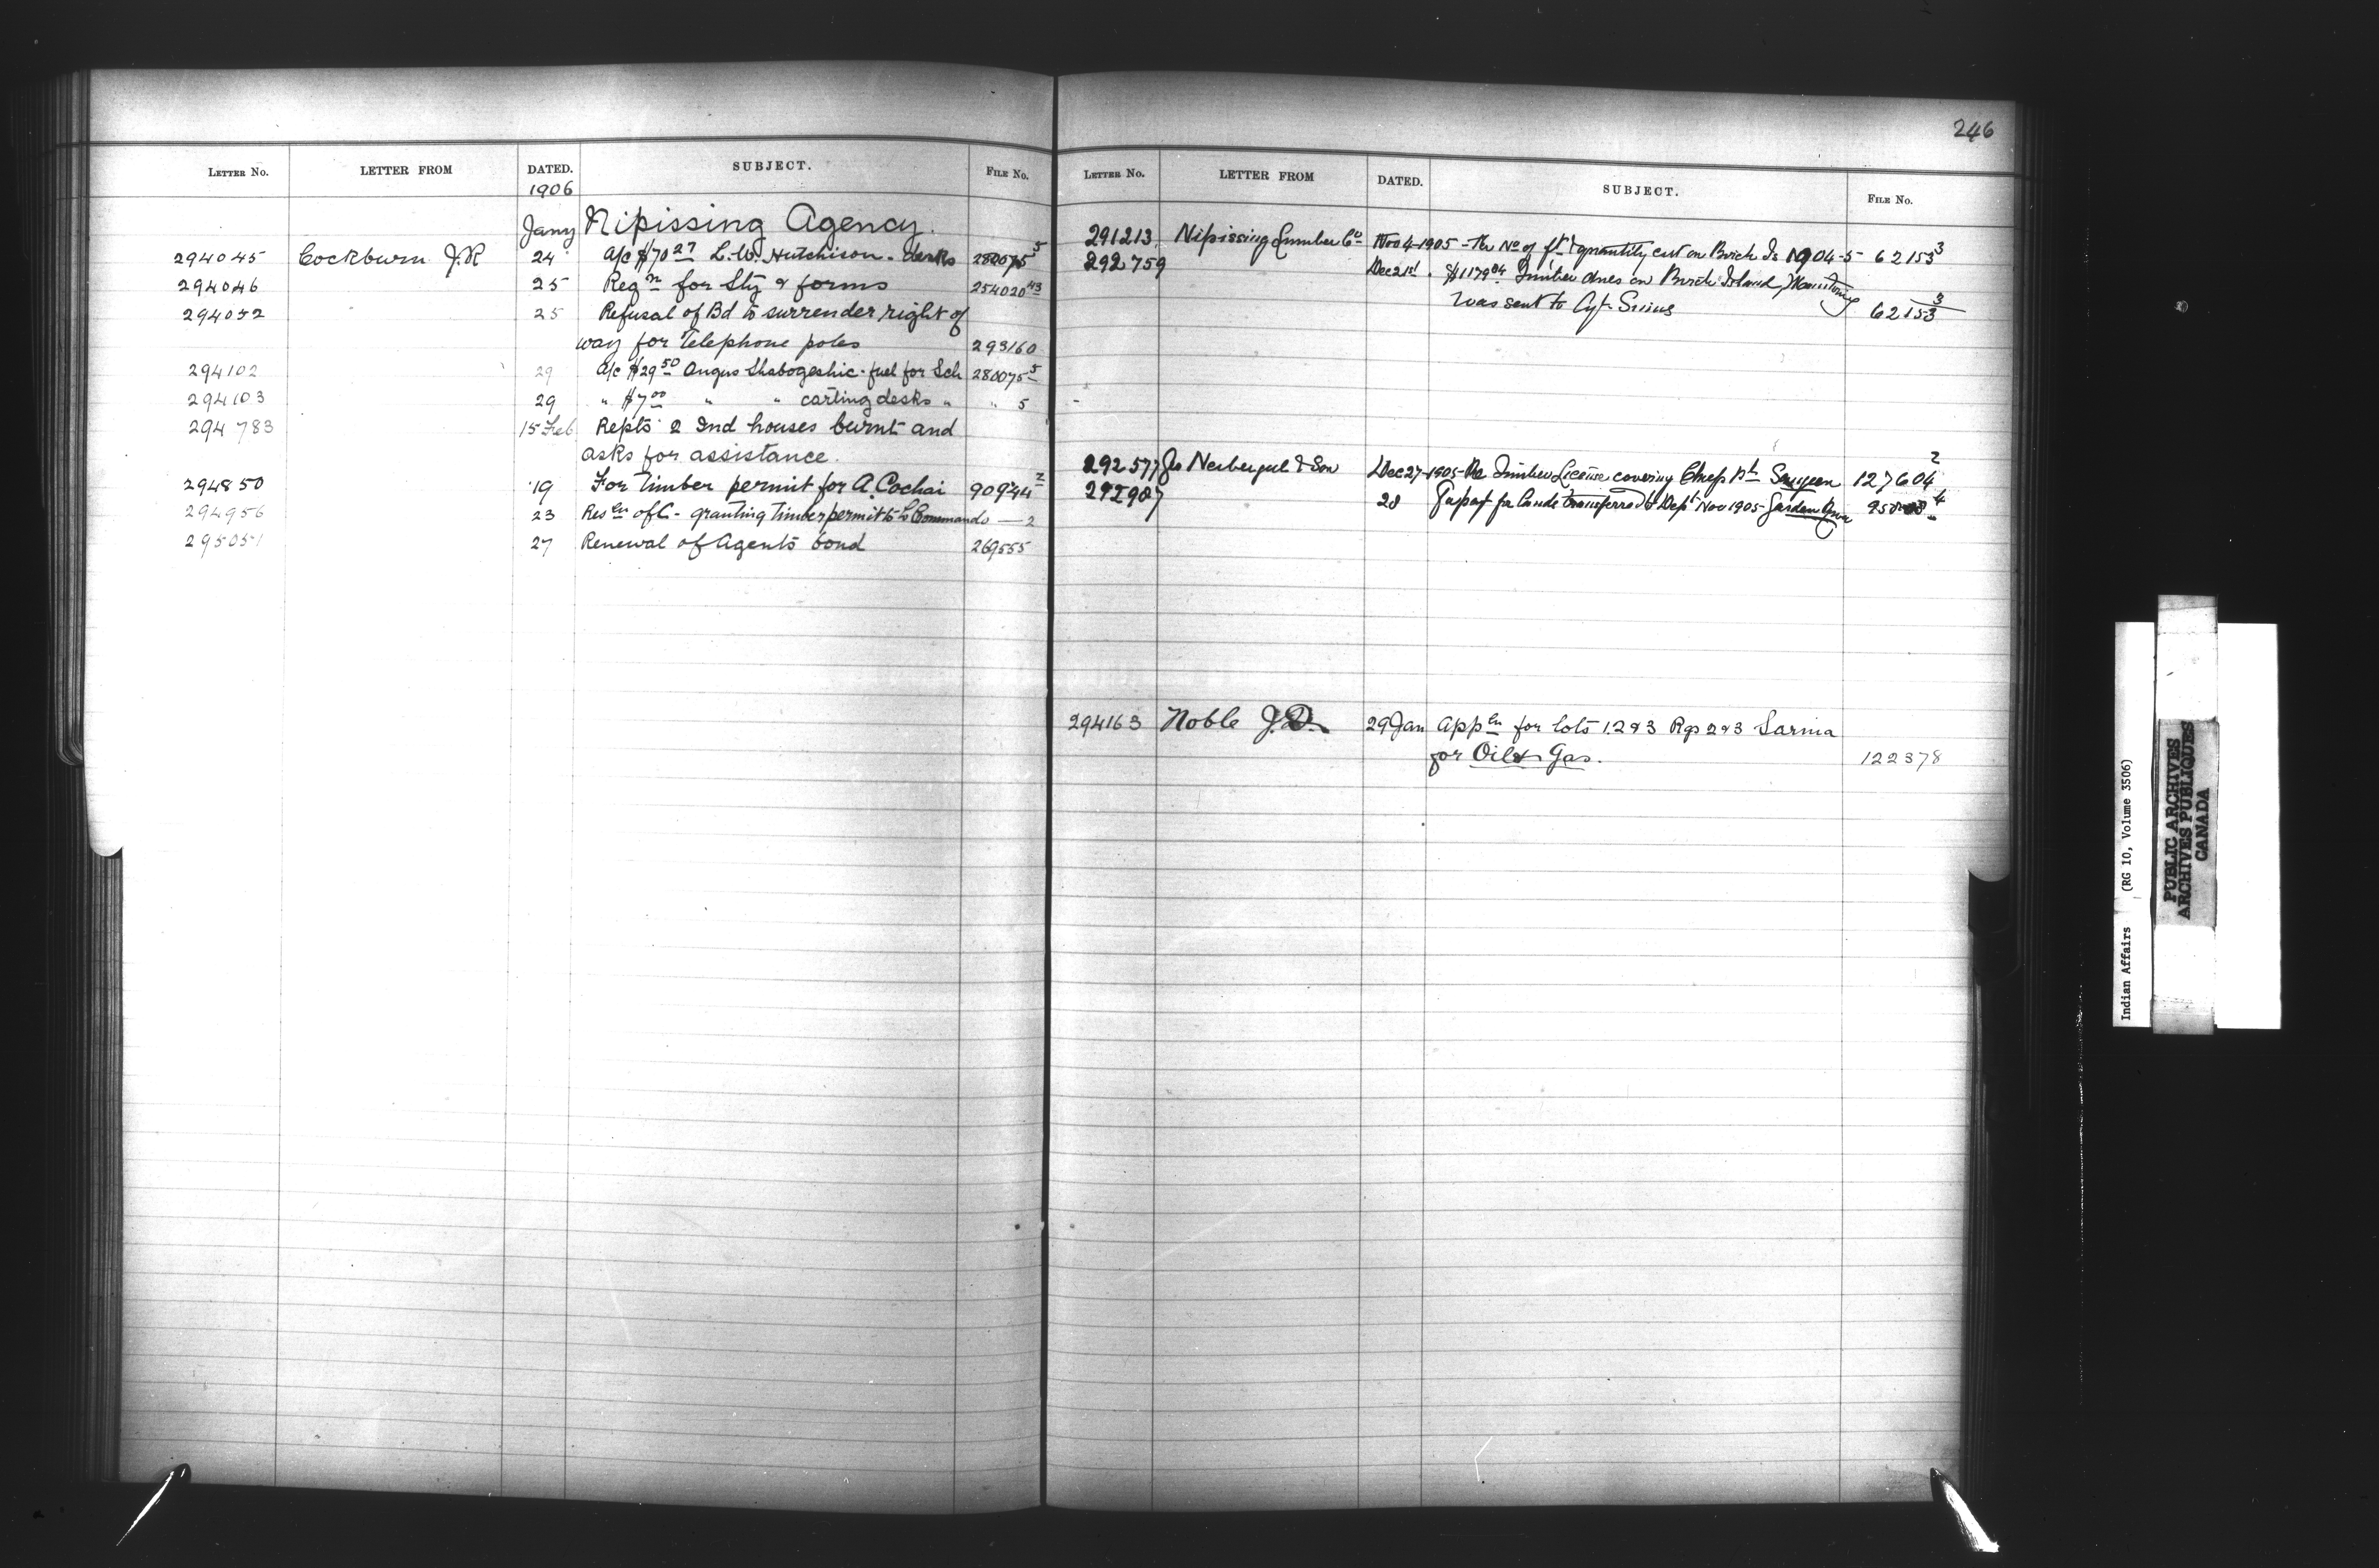 LETTER NO. LETTER FROM DATED. SUBJECT. FILE NO.
1906
Jany Nipissing Agency.
294045 Cockburn J.R 24 a/c $70 27 L.W. Hutchison. desks 280075 5
294046 25 Reqn for Sty & forms 254020 43
294052 25 Refusal of Bd to surrender right of
way for Telephone poles 293160
294102 29 a/c $29 50 Angus Shabogeshic. fuel for Sch 280075 5
294103 29 " $7 00 " " carting desks " " 5
294783 15 Feb Repts 2 Ind houses burnt and
asks for assistance.
294850 19 For Timber permit for A. Cochai 90944 2
294956 23 Resln of C- granting Timber permit to Commando — 2
295051 27 Renewal of Agents bond 269555
246
LETTER NO. LETTER FROM DATED. SUBJECT. FILE NO.
291213 Nipissing Lumber Co Nov 4-1905 - Re No of ft & quantity cut on Birch Is 1904-5- 62153 3
292759 Dec 21st. $1179 04 Timber dues on Birch Island, Manitowg
was sent to Agt. Sims 62153 3
292577 Neibergul & Son Dec 27-1905- Re Timber License covering Chiefs Pt Saugeen 127604 2
292987 28 for lands transferred to Dept Nov 1905 - Garden River
294163 Noble J.D. 29 Jan Appln for lots 1.2 & 3 Rgs 2 & 3 Sarnia
for Oil & Gas. 122378
Indian Affairs (RG 10, Volume 3506)
PUBLIC ARCHIVES
ARCHIVES PUBLIQUES
CANADA